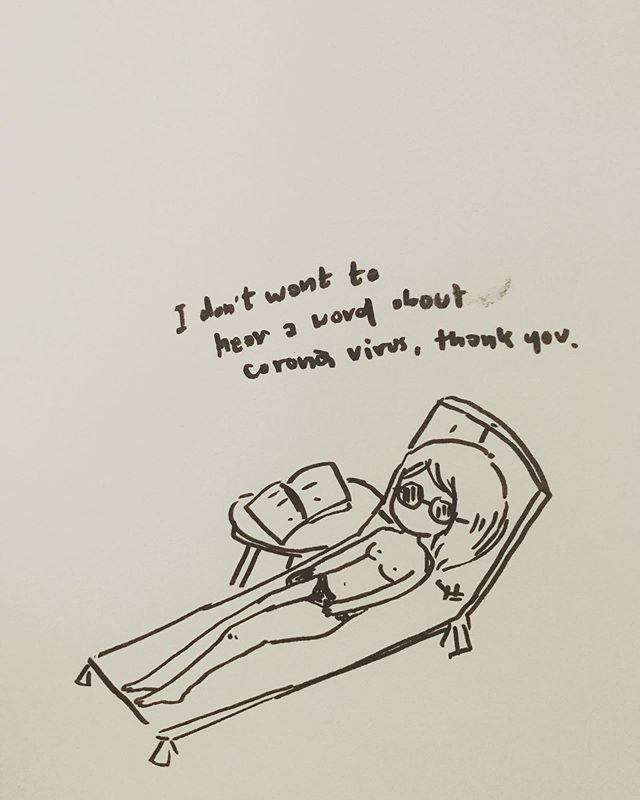 I don't want to
hear a word about
corona virus, thank you.